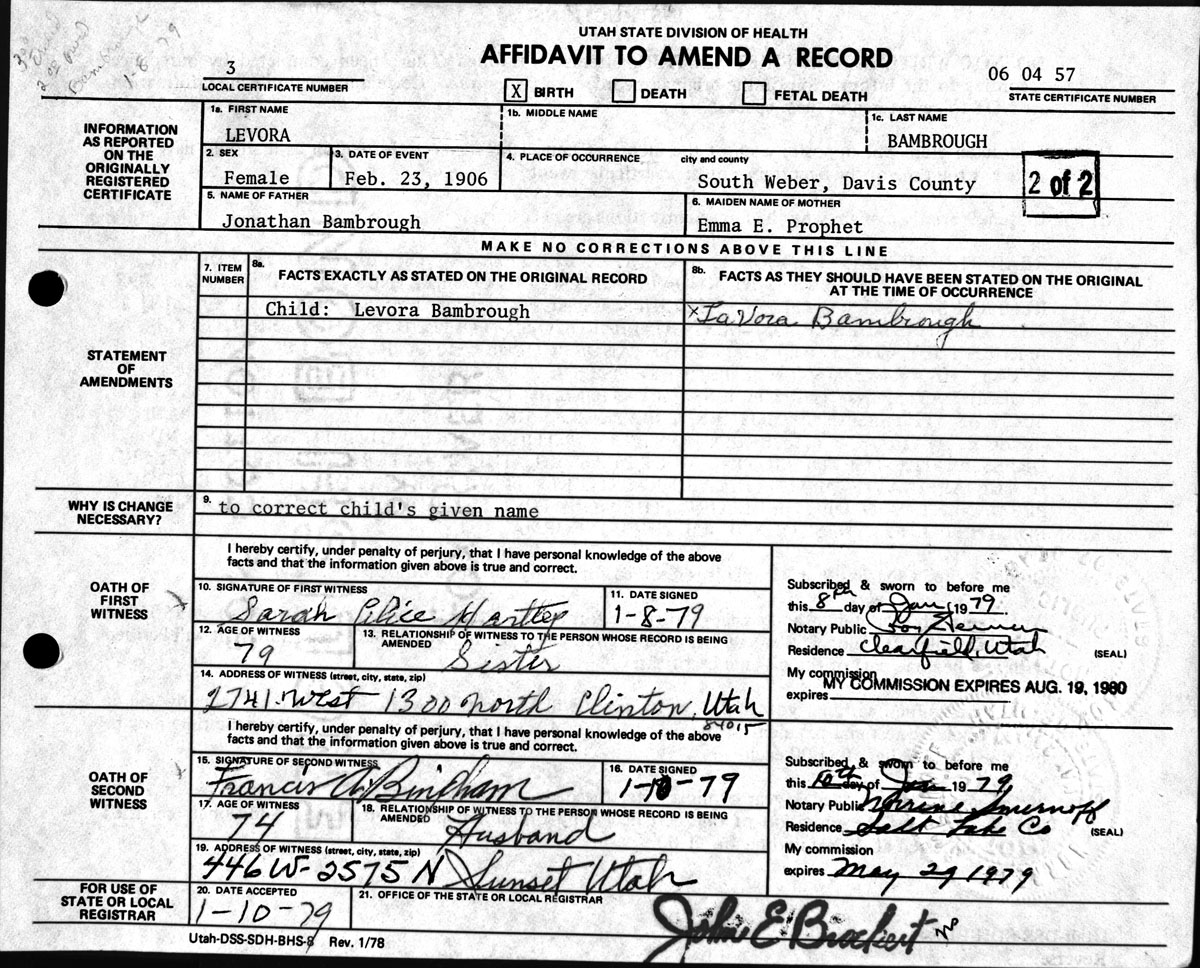 UTAH STATE DIVISION OF HEALTH
AFFIDAVIT TO AMEND A RECORD
1-8 79
3
LOCAL CERTIFICATE NUMBER
X BIRTH DEATH FETAL DEATH
06 04 57
STATE CERTIFICATE NUMBER
INFORMATION AS REPORTED ON THE ORIGINALLY REGISTERED CERTIFICATE
1a. FIRST NAME 1b. MIDDLE NAME 1c. LAST NAME
LEVORA BAMBROUGH
2. SEX 3. DATE OF EVENT 4. PLACE OF OCCURRENCE city and county
Female Feb. 23, 1906 South Weber, Davis County
2 of 2
5. NAME OF FATHER 6. MAIDEN NAME OF MOTHER
Jonathan Bambrough Emma E. Prophet
MAKE NO CORRECTIONS ABOVE THIS LINE
STATEMENT OF AMENDMENTS
7. ITEM NUMBER
8a. FACTS EXACTLY AS STATED ON THE ORIGINAL RECORD
8b. FACTS AS THEY SHOULD HAVE BEEN STATED ON THE ORIGINAL
AT THE TIME OF OCCURRENCE
Child: Levora Bambrough x LaVora Bambrough
WHY IS CHANGE NECESSARY?
9. to correct child's given name
OATH OF FIRST WITNESS
I hereby certify, under penalty of perjury, that I have personal knowledge of the above
facts and that the information given above is true and correct.
10. SIGNATURE OF FIRST WITNESS 11. DATE SIGNED
Sarah Alice Hartley 1-8-79
12. AGE OF WITNESS 13. RELATIONSHIP OF WITNESS TO THE PERSON WHOSE RECORD IS BEING AMENDED
79 Sister
14. ADDRESS OF WITNESS (street, city, state, zip)
2741 West 1300 North Clinton, Utah
84015
Subscribed & sworn to before me
this 8th day of Jan 1979
Notary Public
Residence Clearfield, Utah (SEAL)
My commission
expires MY COMMISSION EXPIRES AUG. 19, 1980
OATH OF SECOND WITNESS
I hereby certify, under penalty of perjury, that I have personal knowledge of the above
facts and that the information given above is true and correct.
15. SIGNATURE OF SECOND WITNESS 16. DATE SIGNED
Francis A Bingham 1-10-79
17. AGE OF WITNESS 18. RELATIONSHIP OF WITNESS TO THE PERSON WHOSE RECORD IS BEING AMENDED
74 Husband
19. ADDRESS OF WITNESS (street, city, state, zip)
446 W-2575 N Sunset Utah
Subscribed & sworn to before me
this 10th day of Jan 1979
Notary Public Norrine Smirnoff
Residence Salt Lake Co (SEAL)
My commission
expires May 29 1979
FOR USE OF STATE OR LOCAL REGISTRAR
20. DATE ACCEPTED 21. OFFICE OF THE STATE OR LOCAL REGISTRAR
1-10-79 John E Brockert
Utah-DSS-SDH-BHS-8 Rev. 1/78